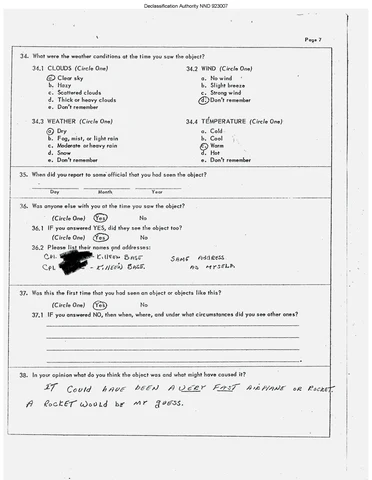 Declassification Authority NND 923007
Page 7
34. What were the weather conditions at the time you saw the object?
34.1 CLOUDS (Circle One) 34.2 WIND (Circle One)
a. Clear sky a. No wind
b. Hazy b. Slight breeze
c. Scattered clouds c. Strong wind
d. Thick or heavy clouds d. Don't remember
e. Don't remember
34.3 WEATHER (Circle One) 34.4 TEMPERATURE (Circle One)
a. Dry a. Cold
b. Fog, mist, or light rain b. Cool
c. Moderate or heavy rain c. Warm
d. Snow d. Hot
e. Don't remember e. Don't remember
35. When did you report to some official that you had seen the object?
Day Month Year
36. Was anyone else with you at the time you saw the object?
(Circle One) Yes No
36.1 IF you answered YES, did they see the object too?
(Circle One) Yes No
36.2 Please list their names and addresses:
CPL - KILLEEN BASE SAME ADDRESS
CPL - KILLEEN BASE. AS MYSELF.
37. Was this the first time that you had seen an object or objects like this?
(Circle One) Yes No
37.1 IF you answered NO, then when, where, and under what circumstances did you see other ones?
38. In your opinion what do you think the object was and what might have caused it?
IT COULD HAVE BEEN A VERY FAST AIRPLANE OR ROCKET.
A ROCKET WOULD BE MY GUESS.